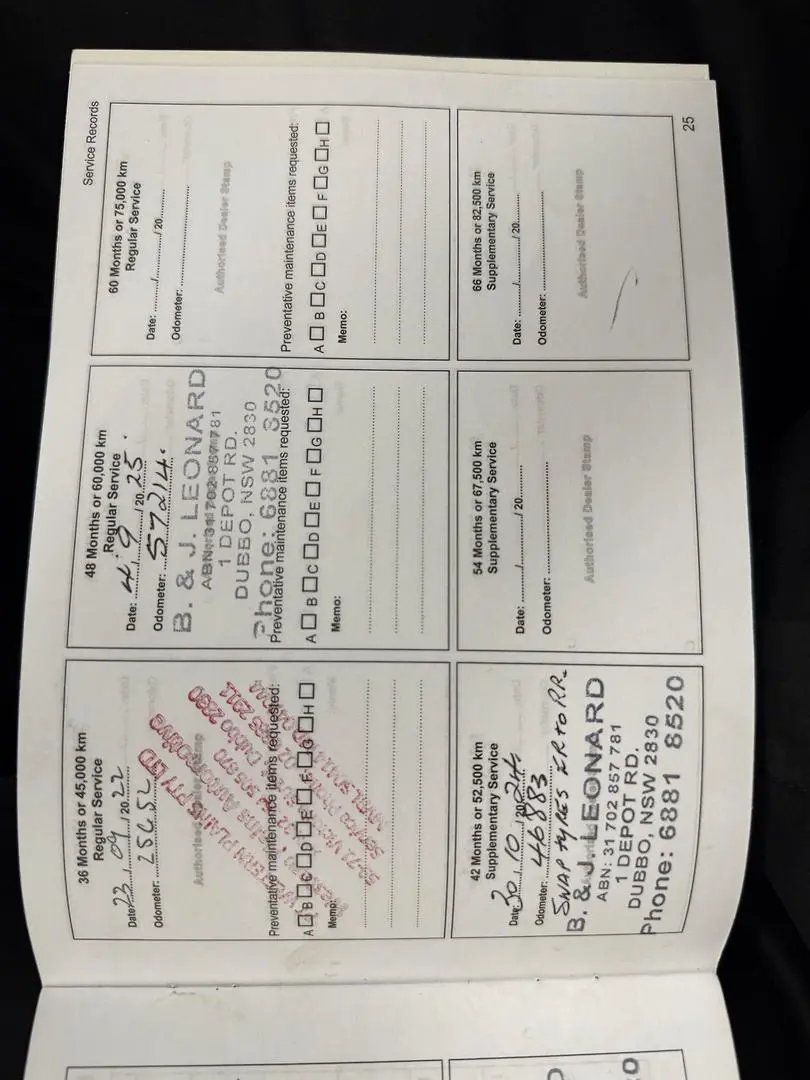 Service Records
36 Months or 45,000 km
Regular Service
Date: 23/09/20 22
Odometer: 25652
Authorised Dealer Stamp
WESTERN PLAINS PTY LTD
Preventative maintenance items requested:
A B C D E F G H
Memo:
48 Months or 60,000 km
Regular Service
Date: 4/9/20 25
Odometer: 57214
B. & J. LEONARD
ABN: 31 702 857 781
1 DEPOT RD.
DUBBO, NSW 2830
Phone: 6881 8520
Preventative maintenance items requested:
A B C D E F G H
Memo:
60 Months or 75,000 km
Regular Service
Date: ........./........./ 20.........
Odometer: ..............................
Authorised Dealer Stamp
Preventative maintenance items requested:
A B C D E F G H
Memo:
42 Months or 52,500 km
Supplementary Service
Date: 30/10/20 24
Odometer: 46883
SWAP TYRES FR to RR.
B. & J. LEONARD
ABN: 31 702 857 781
1 DEPOT RD.
DUBBO, NSW 2830
Phone: 6881 8520
54 Months or 67,500 km
Supplementary Service
Date: ........./........./ 20.........
Odometer: ..............................
Authorised Dealer Stamp
66 Months or 82,500 km
Supplementary Service
Date: ........./........./ 20.........
Odometer: ..............................
Authorised Dealer Stamp
25